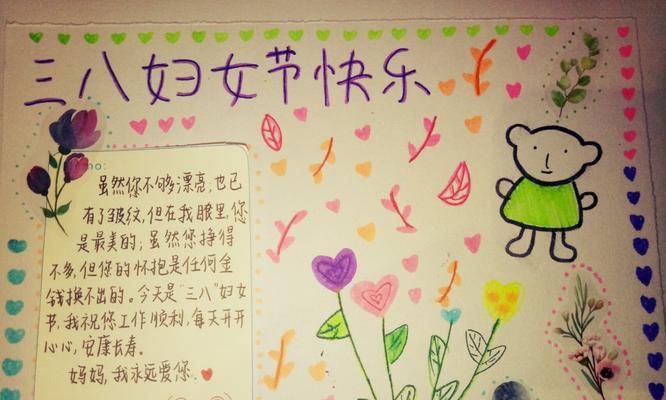 三八妇女节快乐
mo:
虽然你不够漂亮,也已
有了皱纹,但在我眼里,您
是最美的,虽然您挣得
不多,但您的怀抱是任何金
钱换不出的。今天是“三八”妇女
节,我祝您工作顺利,每天开开
心心,安康长寿。
妈妈,我永远爱您